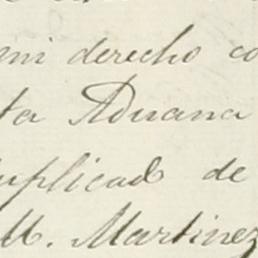 mi derecho co
ta Aduana
uplicado de
M. Martinez